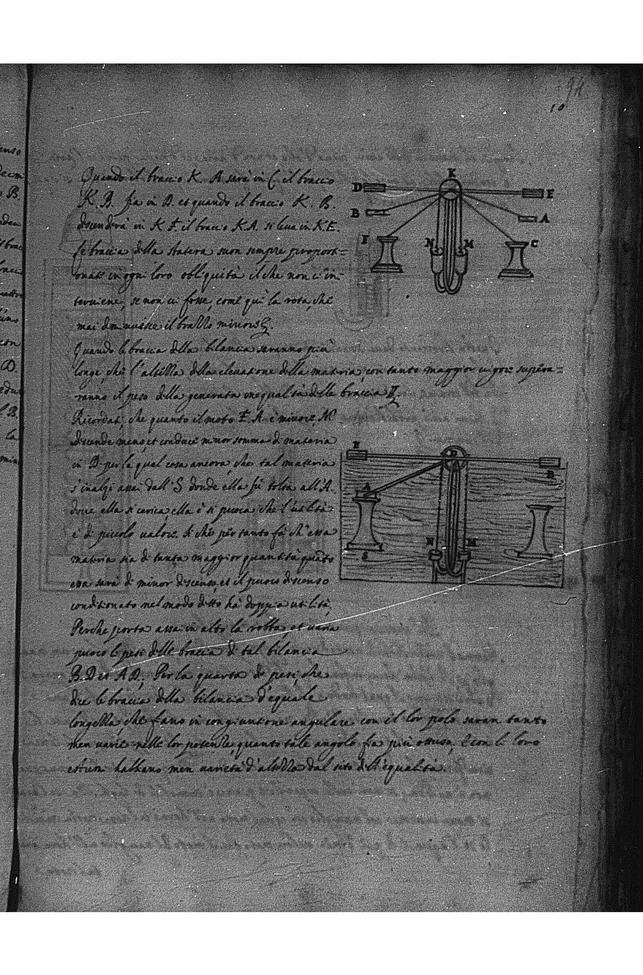 94
10
Quando il braccio K. A sera in C. il braccio
K. B. fia in D. et quando il braccio K. B.
descenderà in K F. il braccio K A. si leva in K E.
le braccia della statera son sempre proport=
onate in ogni loro obliquità il che non ci in=
terviene, se non ci fosse come qui la rota che
mai diminuisse il braccio minore G.
Quando le braccia della bilancia saranno più
longe, che l'altezza della elevatione della materia, con tanto maggior vigore supera=
ranno il peso della generata inequalità delle braccia H.
Ricordati, che quanto il moto F. A. è minore N
discende meno, et conduce minor somma di materia
in D per la qual cosa ancora che tal materia
s'inalzi assai dall' S donde ella fù tolta all' A.
dove ella si carica ella è si puoca che l'utilità
è di piccolo valore. si che per tanto fà ch'essa
materia sia di tanta maggior quantità quanto
essa sarà di minor discenso, et il puoco discenso
conditionato nel modo detto ha doppia utilità,
Perche porta assai in alto la robba, et varia
puoco le pesi delle braccia di tal bilancia
B. D et A D, Per la quarta de pesi, che
dice le braccia della bilancia d'equale
longezza, che fano in congiuntione angulare con il lor polo saran tanto
men varie nelle lor potenze, quanto tale angolo fia più ottuso, e con li loro
estremi habbano men varietà d'altezza dal sito dell'equalità.
K
D E
B A
F C
N M
E D B
A
S
N M